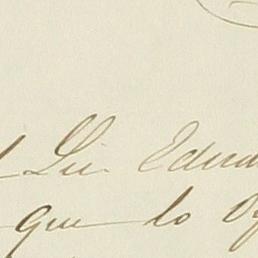 Lic. Eduar
que lo